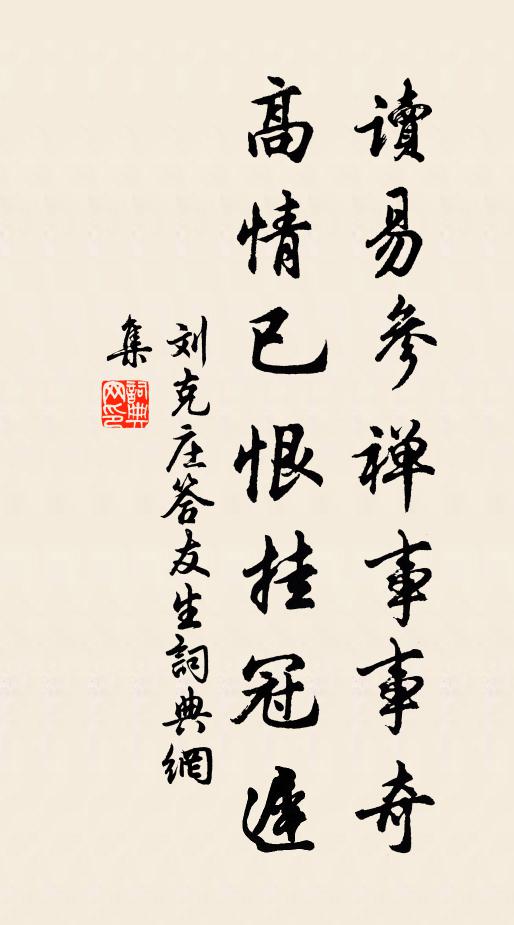 讀易參禅事事奇
高情已恨挂冠遲
刘克庄答友生詞典網
集
詞典網印